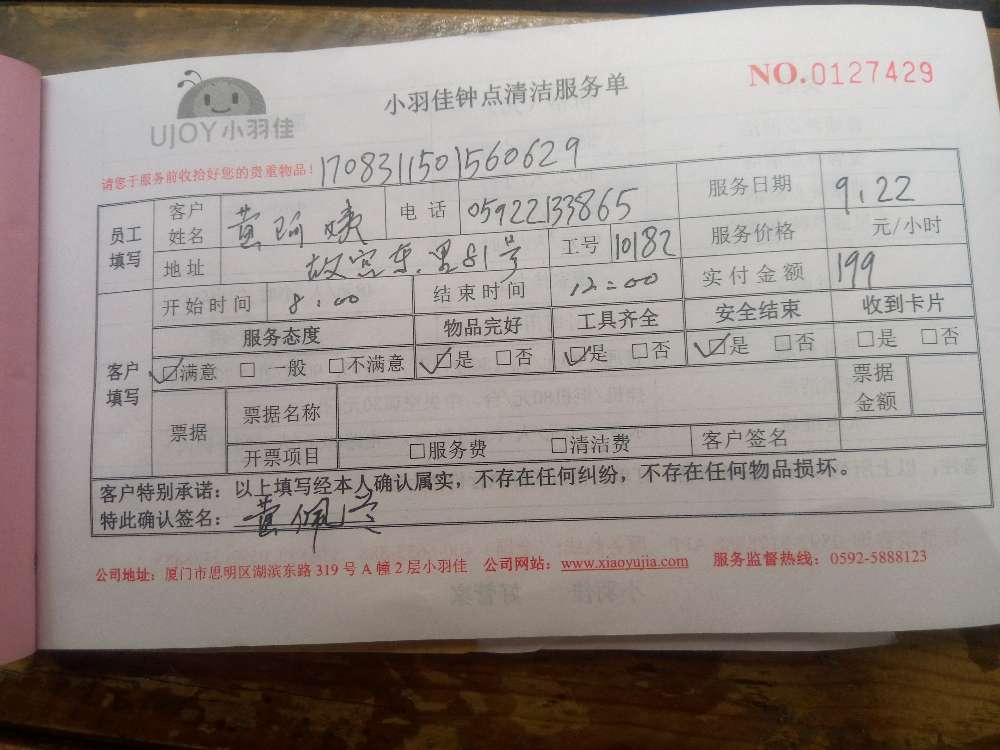 UJOY小羽佳
小羽佳钟点清洁服务单
NO.0127429
请您于服务前收拾好您的贵重物品！ 1708311501560629
员工填写 客户姓名 黄 电话 05922133865 服务日期 9.22
地址 故宫东里81号 工号 10182 服务价格 元/小时
客户填写 开始时间 8:00 结束时间 12:00 实付金额 199
服务态度 物品完好 工具齐全 安全结束 收到卡片
☑满意 □一般 □不满意 ☑是 □否 ☑是 □否 ☑是 □否 □是 □否
票据 票据名称 票据金额
开票项目 □服务费 □清洁费 客户签名
客户特别承诺：以上填写经本人确认属实，不存在任何纠纷，不存在任何物品损坏。
特此确认签名：黄佩
公司地址：厦门市思明区湖滨东路 319 号 A 幢 2 层小羽佳 公司网站：www.xiaoyujia.com 服务监督热线：0592-5888123